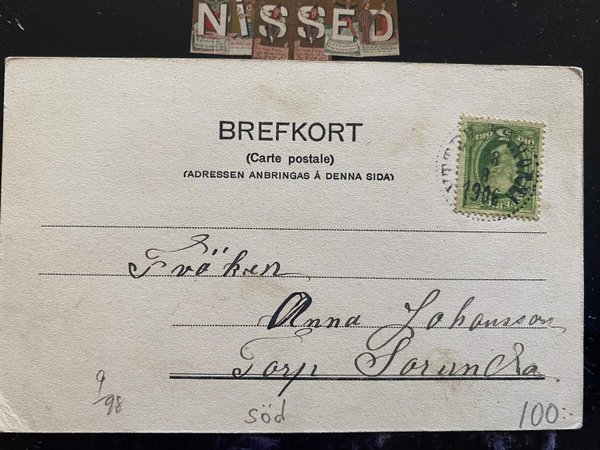 NISSED
BREFKORT
(Carte postale)
(ADRESSEN ANBRINGAS Å DENNA SIDA)
8
1906
Fröken
Anna Johansson
Torp Sorunda
9/98
söd
100:-